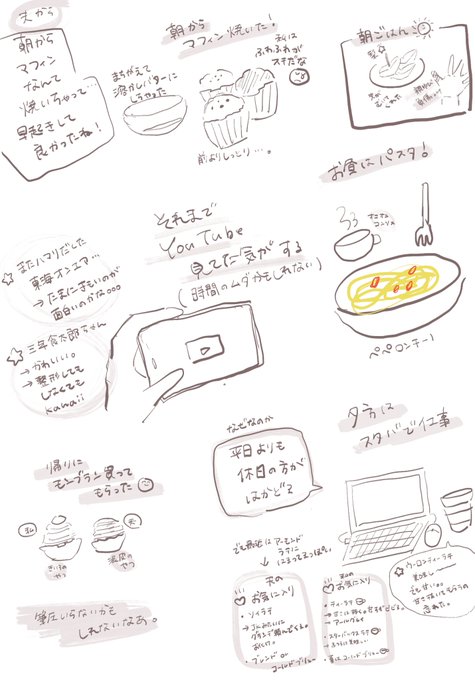 夫から
朝から
マフィン
なんて
焼いちゃって…
早起きして
良かったね!
朝から
マフィン焼いた!
まちがえて
溶かしバターに
しちゃった
夫には
ふわふわが
スキだな
前よりしっとり…。
朝ごはん
お昼はパスタ!
オニオン
コンソメ
ペペロンチーノ
それまで
YouTube
見てた気がする
(時間のムダかもしれない)
またハマりだした
東海オンエア…
→たまにきもいのが
面白いのかな。。。
三年食太郎ちゃん
→かわいい。
→整形しても
しなくても
kawaii
夕方は
スタバで仕事
なぜなのか
平日よりも
休日の方が
はかどる
でも最近はアーモンド
ラテに
はまってるっぽい
夫の
お気に入り
・ソイラテ
おいしい。
・ブレンド or
コールドブリュー
私の
お気に入り
・ティーラテ
→アールグレイ
・スターバックスラテ
・夏はコールドブリュー
・ウーロンティーラテ
美味しー
でも甘い。。
甘さ抜いてもらうの
きめた。
帰りに
モンブラン買って
もらった
私
夫
筆圧いらないかも
しれないなあ。